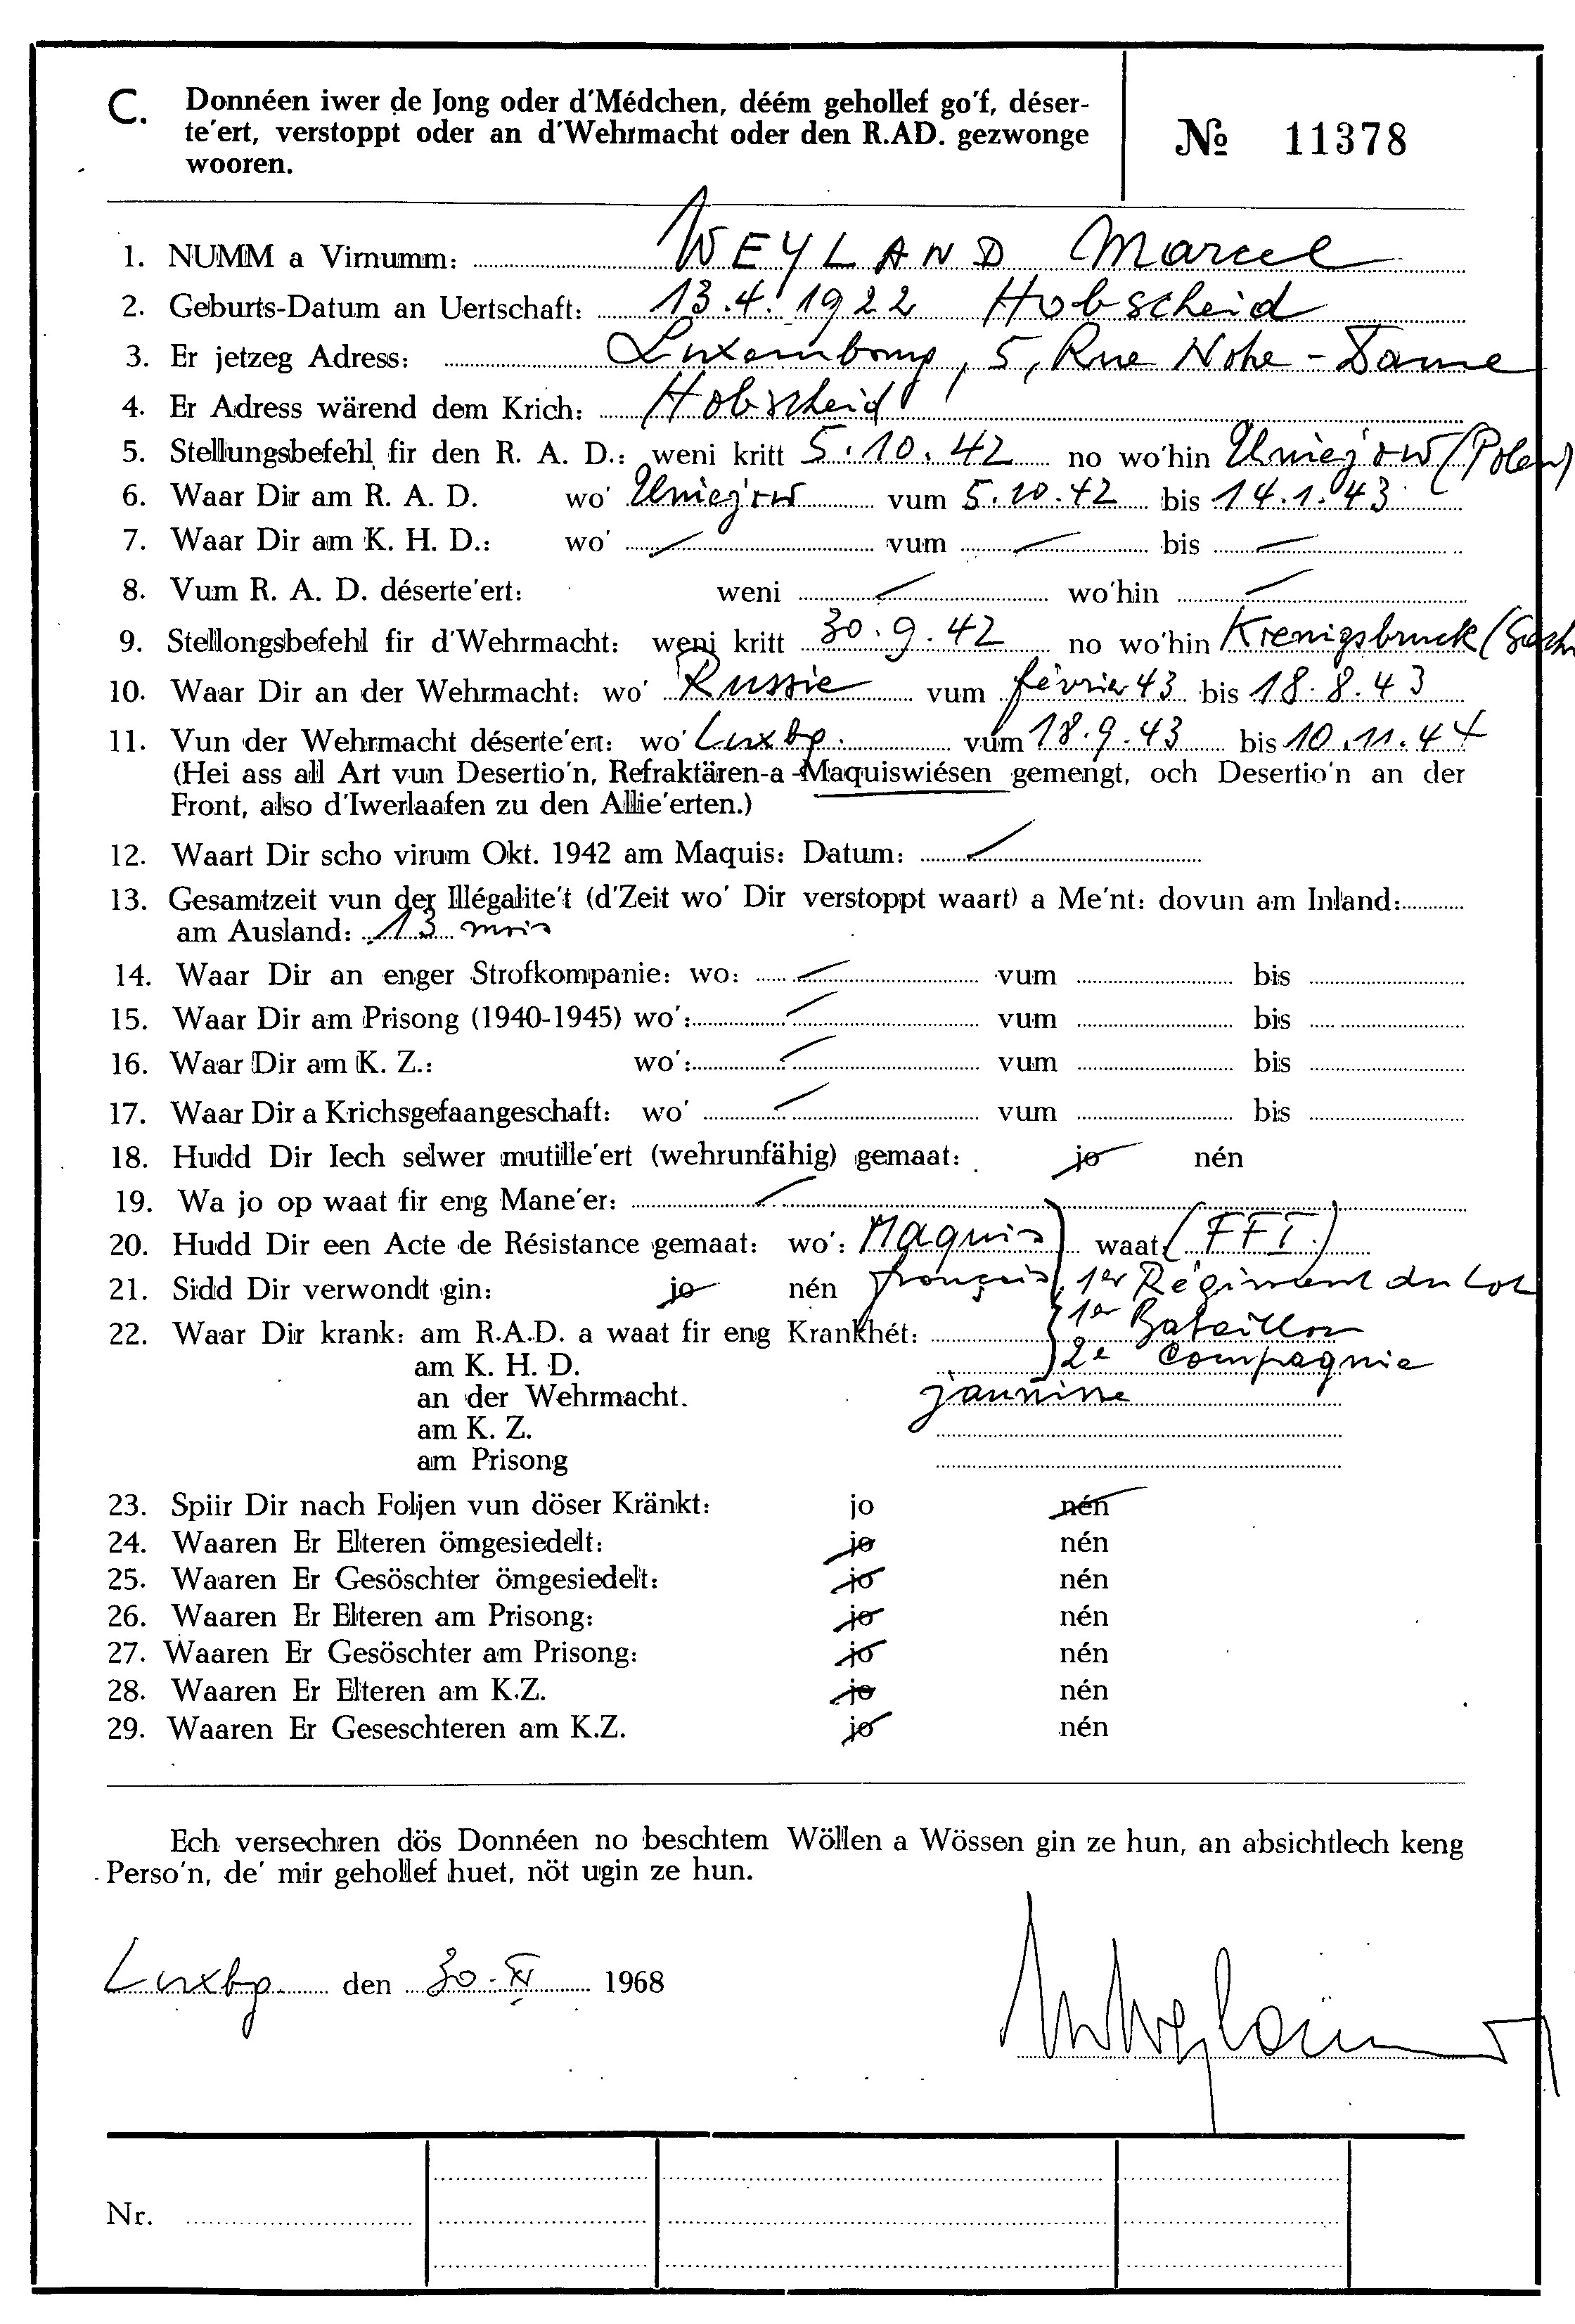 C. Donnéen iwer de Jong oder d'Médchen, déém gehollef go'f, déser-
te'ert, verstoppt oder an d'Wehrmacht oder den R.AD. gezwonge
wooren.
№ 11378
1. NUMM a Virnumm: WEYLAND Marcel
2. Geburts-Datum an Uertschaft: 13.4.1922 Hobscheid
3. Er jetzeg Adress: Luxembourg, 5, Rue Notre-Dame
4. Er Adress wärend dem Krich: Hobscheid
5. Stellungsbefehl fir den R. A. D.: weni kritt 5.10.42 no wo'hin Uniejow (Polen)
6. Waar Dir am R. A. D. wo' Uniejow vum 5.10.42 bis 14.1.43
7. Waar Dir am K. H. D.: wo' vum bis
8. Vum R. A. D. déserte'ert: weni wo'hin
9. Stellongsbefehl fir d'Wehrmacht: weni kritt 30.9.42 no wo'hin Krenigsbruck
10. Waar Dir an der Wehrmacht: wo' Russie vum février 43 bis 18.8.43
11. Vun der Wehrmacht déserte'ert: wo' Luxbg. vum 18.9.43 bis 10.11.44
(Hei ass all Art vun Desertio'n, Refraktären-a -Maquiswiésen gemengt, och Desertio'n an der
Front, also d'Iwerlaafen zu den Allie'erten.)
12. Waart Dir scho virum Okt. 1942 am Maquis: Datum:
13. Gesamtzeit vun der Illégalite't (d'Zeit wo' Dir verstoppt waart) a Me'nt: dovun am Inland:
am Ausland: 13 mois
14. Waar Dir an enger Strofkompanie: wo: vum bis
15. Waar Dir am Prisong (1940-1945) wo': vum bis
16. Waar Dir am K. Z.: wo': vum bis
17. Waar Dir a Krichsgefaangeschaft: wo' vum bis
18. Hudd Dir Iech selwer mutille'ert (wehrunfähig) gemaat: jo nén
19. Wa jo op waat fir eng Mane'er:
20. Hudd Dir een Acte de Résistance gemaat: wo': Maquis waat: (FFI.)
21. Sidd Dir verwondt gin: jo nén français 1er Régiment du Lot
1er Bataillon
22. Waar Dir krank: am R.A.D. a waat fir eng Krankhét:
am K. H. D. 2e Compagnie
an der Wehrmacht. jaunisse
am K. Z.
am Prisong
23. Spiir Dir nach Foljen vun döser Kränkt: jo nén
24. Waaren Er Elteren ömgesiedelt: jo nén
25. Waaren Er Gesöschter ömgesiedelt: jo nén
26. Waaren Er Elteren am Prisong: jo nén
27. Waaren Er Gesöschter am Prisong: jo nén
28. Waaren Er Elteren am K.Z. jo nén
29. Waaren Er Geseschteren am K.Z. jo nén
Ech versechren dös Donnéen no beschtem Wöllen a Wössen gin ze hun, an absichtlech keng
Perso'n, de' mir gehollef huet, nöt ugin ze hun.
Luxbg. den 30.XI 1968
Nr.